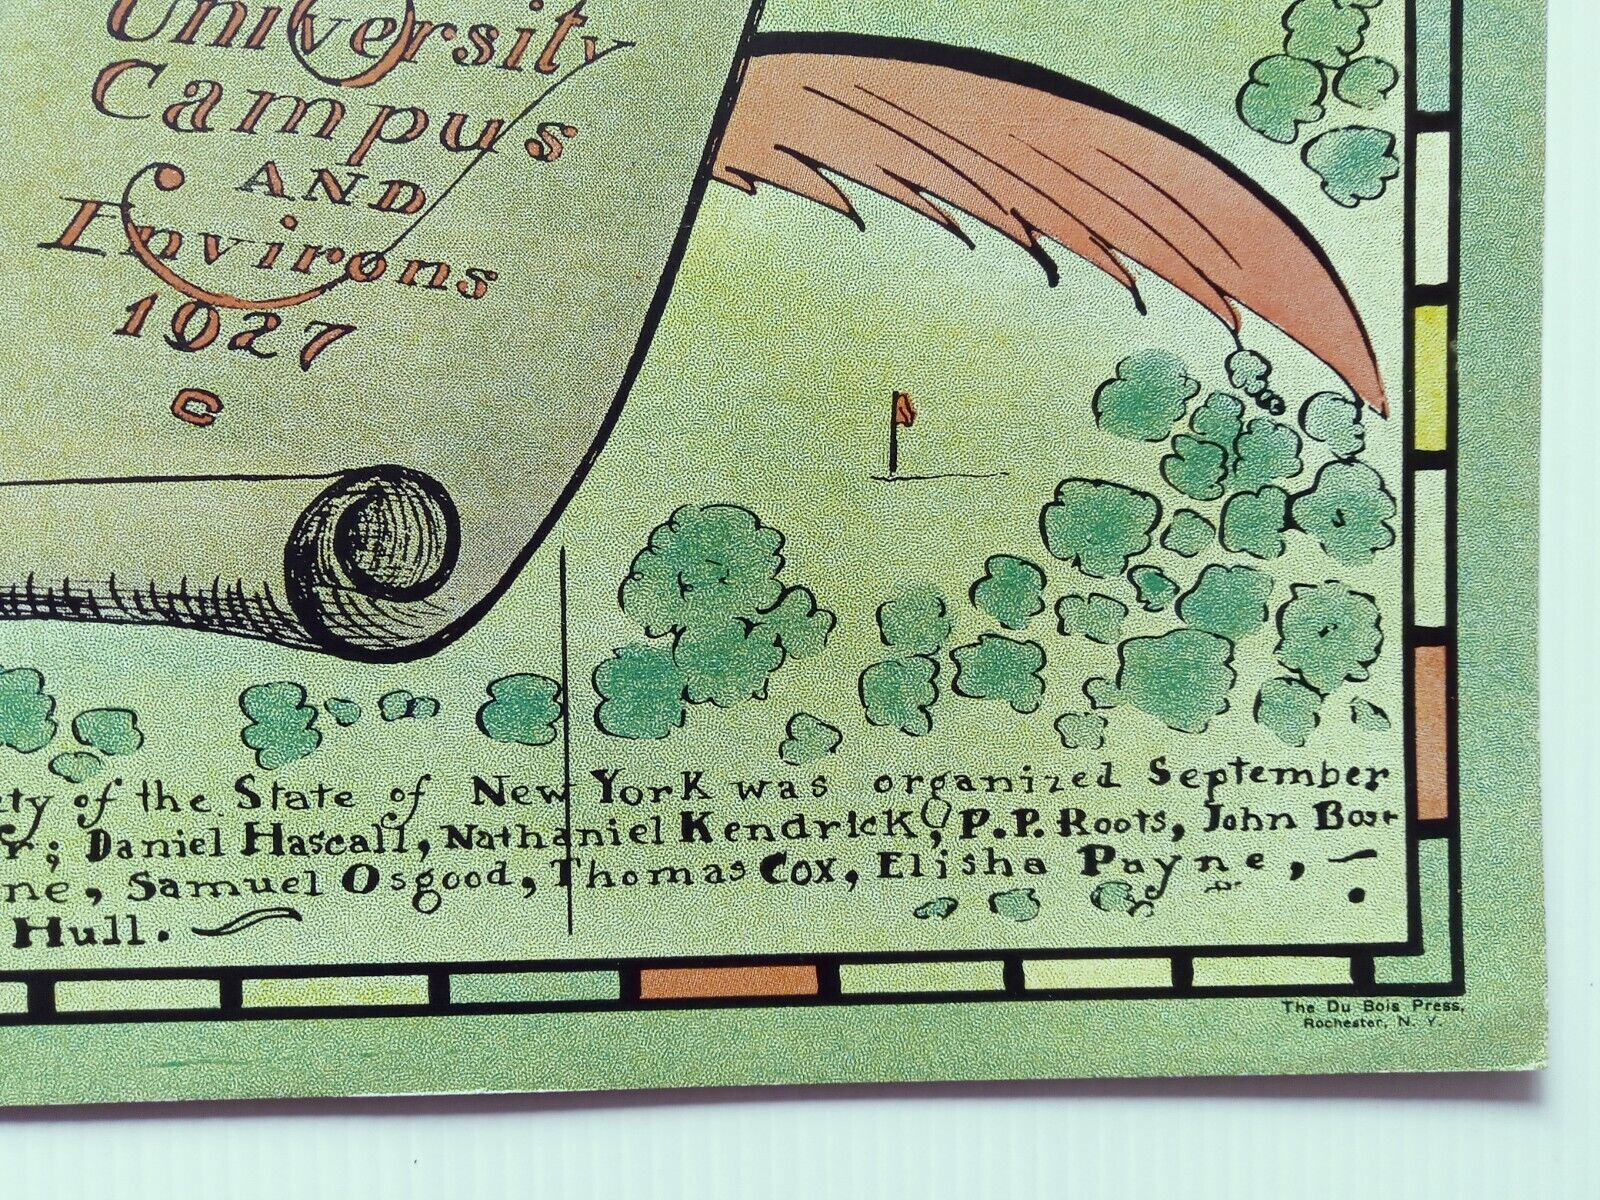 University
Campus
AND
Environs
1927
C
ty of the State of New York was organized September
; Daniel Hascall, Nathaniel Kendrick, P.P. Roots, John Bost
ne, Samuel Osgood, Thomas Cox, Elisha Payne,
Hull.
The Du Bois Press,
Rochester, N. Y.